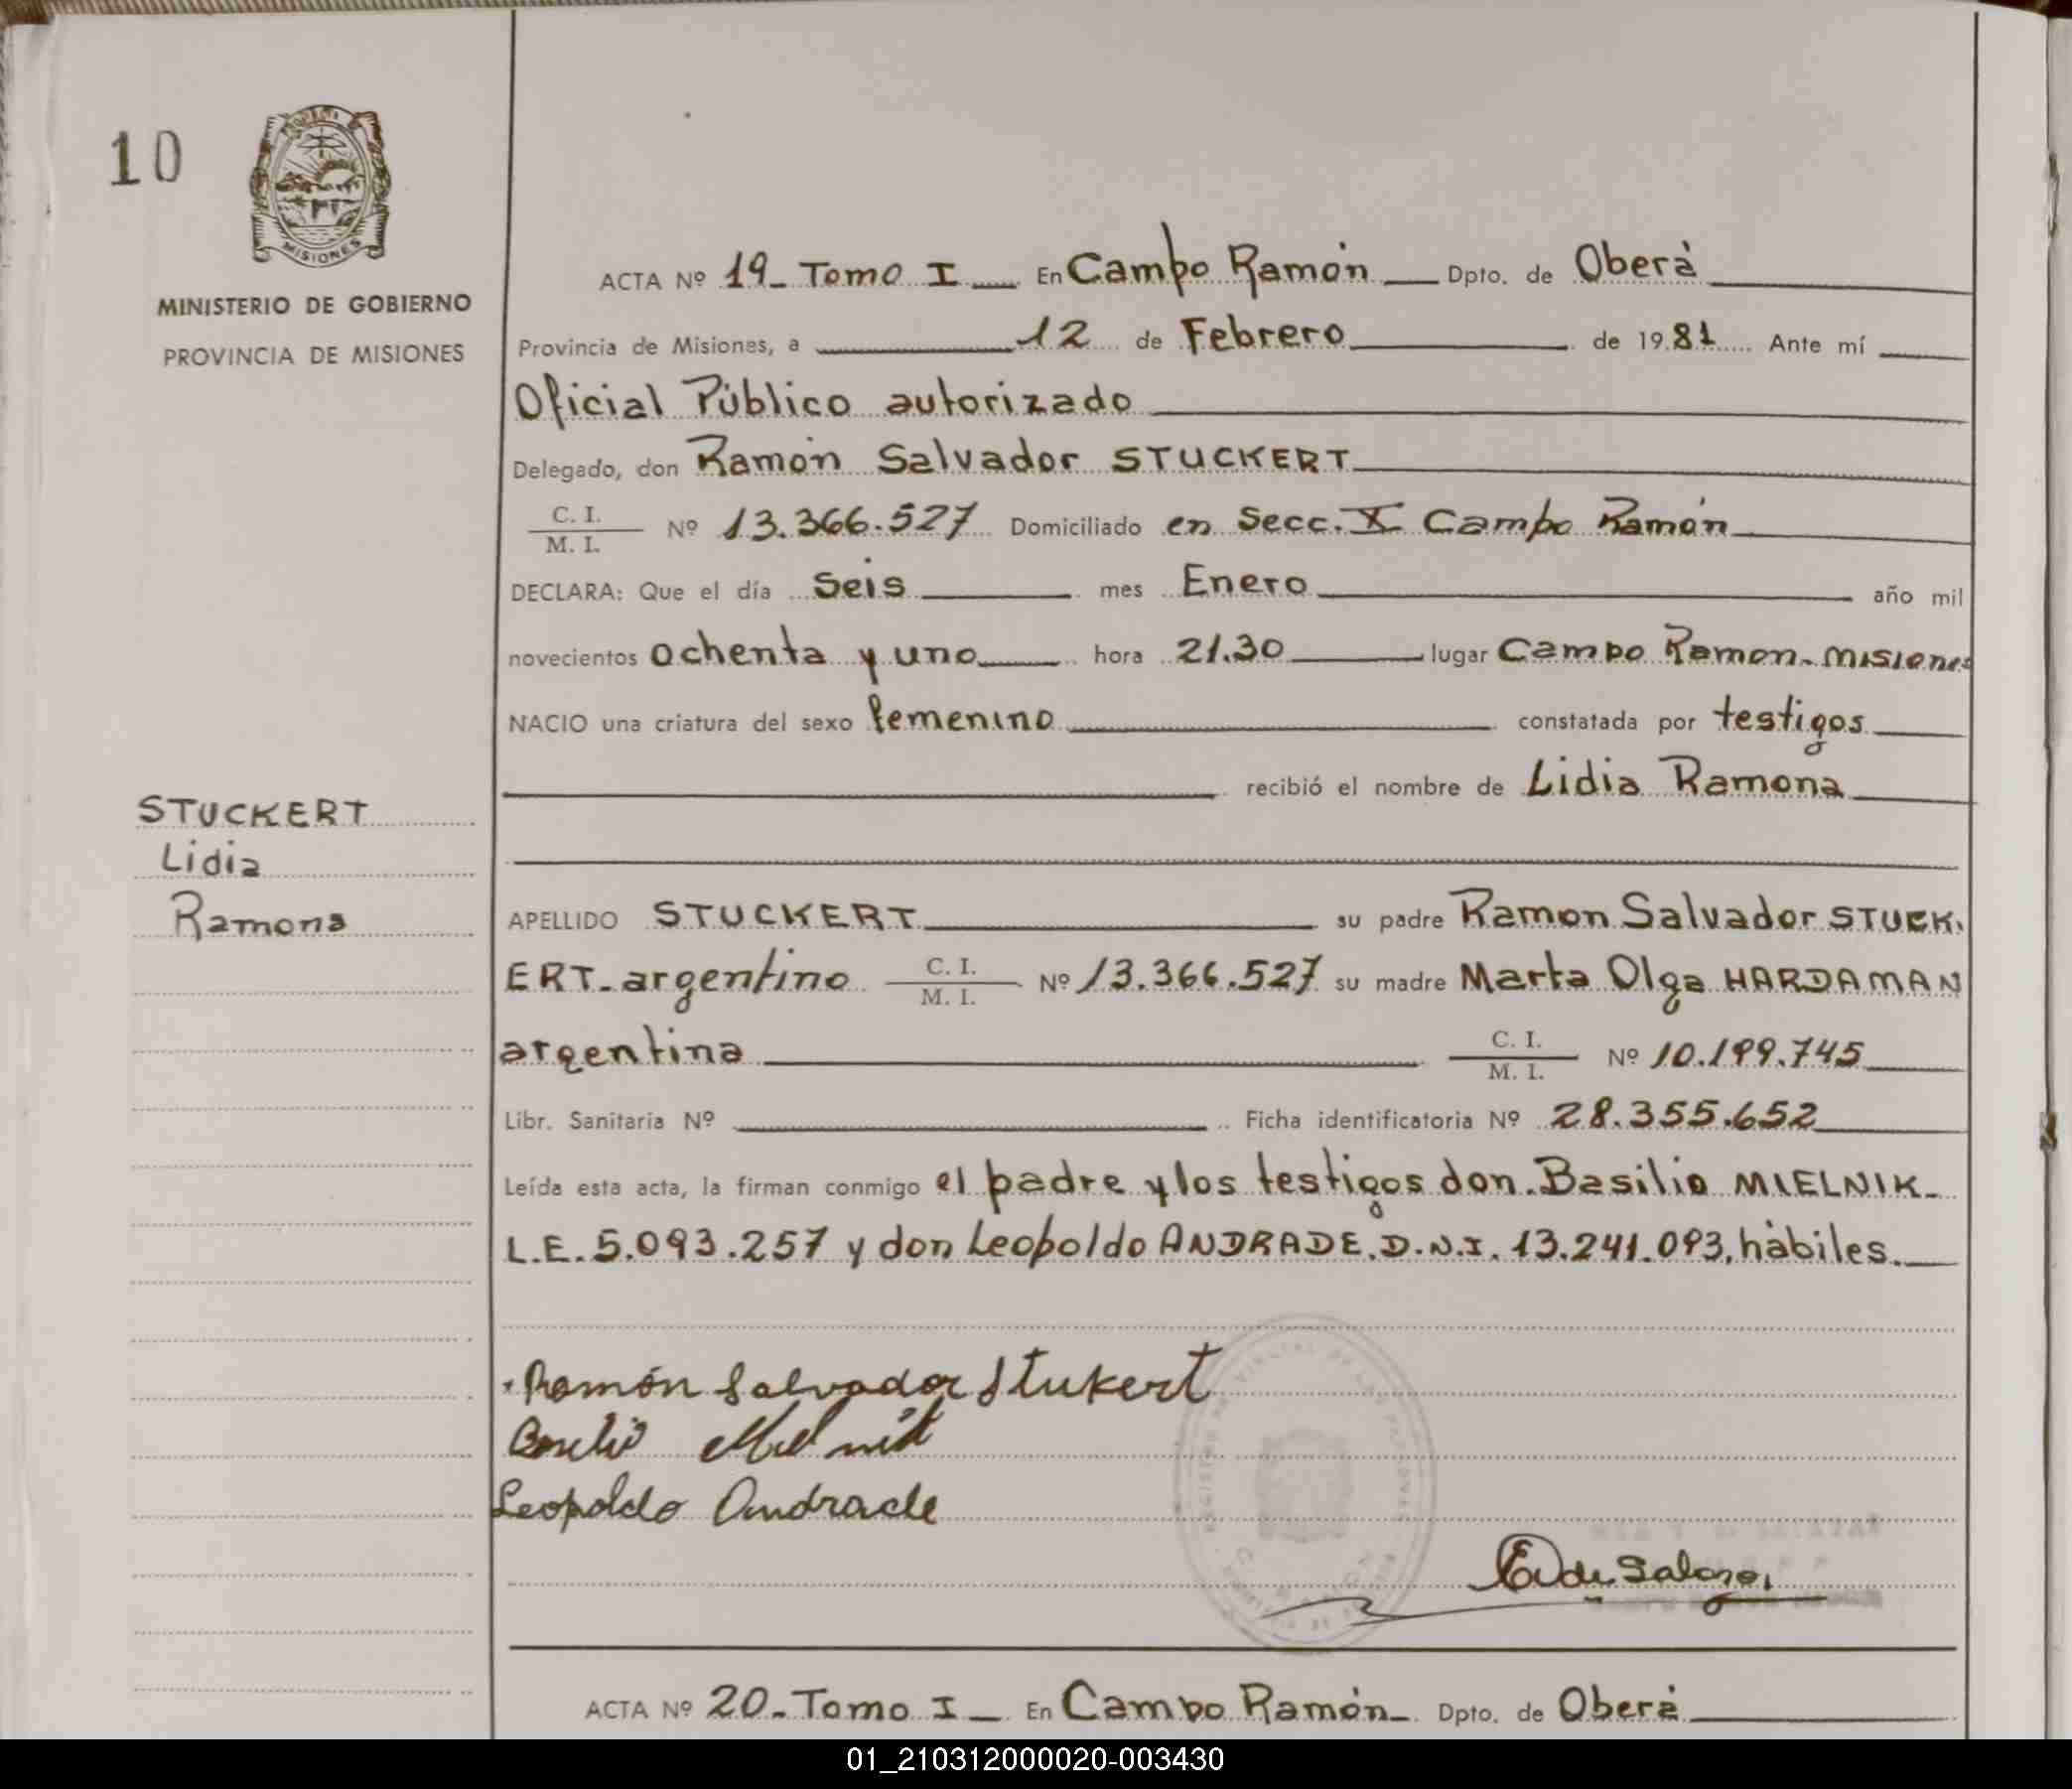 10
MISIONES
MINISTERIO DE GOBIERNO
PROVINCIA DE MISIONES
ACTA Nº 19_ Tomo I En Campo Ramón Dpto. de Oberá
Provincia de Misiones, a 12 de Febrero de 1981 Ante mí
Oficial Público autorizado
Delegado, don Ramón Salvador STUCKERT
C. I.
M. I.
Nº 13.366.527 Domiciliado en Secc. X Campo Ramón
DECLARA: Que el día Seis mes Enero año mil
novecientos ochenta y uno hora 21.30 lugar Campo Ramon-Misiones
NACIO una criatura del sexo femenino constatada por testigos
recibió el nombre de Lidia Ramona
STUCKERT
Lidia
Ramona
APELLIDO STUCKERT su padre Ramon Salvador STUCK.
ERT-argentino C. I. M. I. Nº 13.366.527 su madre Marta Olga HARDAMAN
argentina C. I. M. I. Nº 10.199.745
Libr. Sanitaria Nº Ficha identificatoria Nº 28.355.652
Leída esta acta, la firman conmigo el padre y los testigos don Basilio MIELNIK-
L.E. 5.093.257 y don Leopoldo ANDRADE, D.N.I. 13.241.093, hábiles.
Ramón Salvador Stukert
Basilio Mielnik
Leopoldo Andrade
de Salazar
ACTA Nº 20-Tomo I En Campo Ramón Dpto. de Oberá
01_210312000020-003430